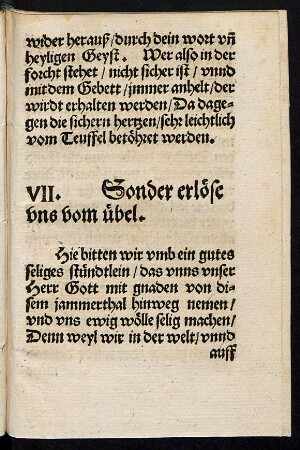 wider herauß/durch dein wort vñ
heyligen Geyst. Wer also in der
forcht stehet/nicht sicher ist/vnnd
mit dem Gebett/jmmer anhelt/der
wirdt erhalten werden/Da dage-
gen die sichern hertzen/sehr leichtlich
vom Teuffel betöhret werden.
VII. Sonder erlöse
vns vom übel.
Hie bitten wir vmb ein gutes
seliges stündtlein/das vnns vnser
Herr Gott mit gnaden von di-
sem jammerthal hinweg nemen/
vnd vns ewig wölle selig machen/
Denn weyl wir in der welt/vnnd
auff